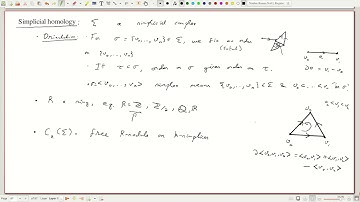 Simplicial homology: Σ a simplicial complex
• Orientation: For σ = {v₀,...,vₙ} ∈ Σ, we fix an order
(total)
on {v₀,...,vₙ}
• If τ ⊂ σ, order on σ gives order on τ.
• σ = <v₀,...,vₙ> simplex means {v₀,...,vₙ} ∈ Σ & v₀ < ... < vₙ in σ
• R a ring, eg. R = ℤ, ℤ/2, ℚ, ℝ
• Cₙ(Σ) = free R-module on n-simplices
v₀ v₁
∂σ = v₁ - v₀
v₀ < v₁ < v₂
v₂
v₀ v₁
∂<v₀,v₁,v₂> = <v₀,v₁> + <v₁,v₂>
- <v₀,v₂>